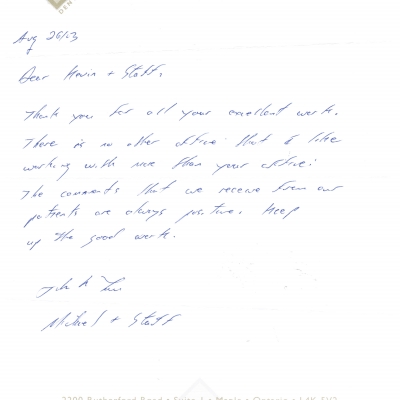 DEN
Aug 26/13
Dear Kevin + Staff,
Thank you for all your excellent work.
There is no other office that I like
working with more than your office.
The comments that we receive from our
patients are always positive. Keep
up the good work.
Thank You
Michael + Staff
2200 Rutherford Road • Suite 1 • Maple • Ontario • L4K 5V2